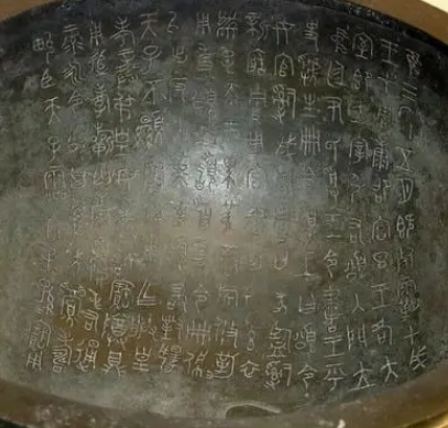 隹三年五月既死霸甲戌
王才周康卲宮旦王各大
室即立宰引右頌入門立
中廷尹氏受王令書王乎
史虢生冊令頌王曰頌令
女官𤔲成周貯廿家監𤔲
新造貯用宮御易女玄衣
黹屯赤巿朱黃䜌旂攸勒
用事頌拜𩒨首受令冊佩
以出反入堇章頌敢對揚
天子不顯魯休用乍朕皇
考龏弔皇母龏始寶尊鼎
用追孝康屯右通
彔永令頌其萬年眉壽
畯臣天子霝冬子孫寶用